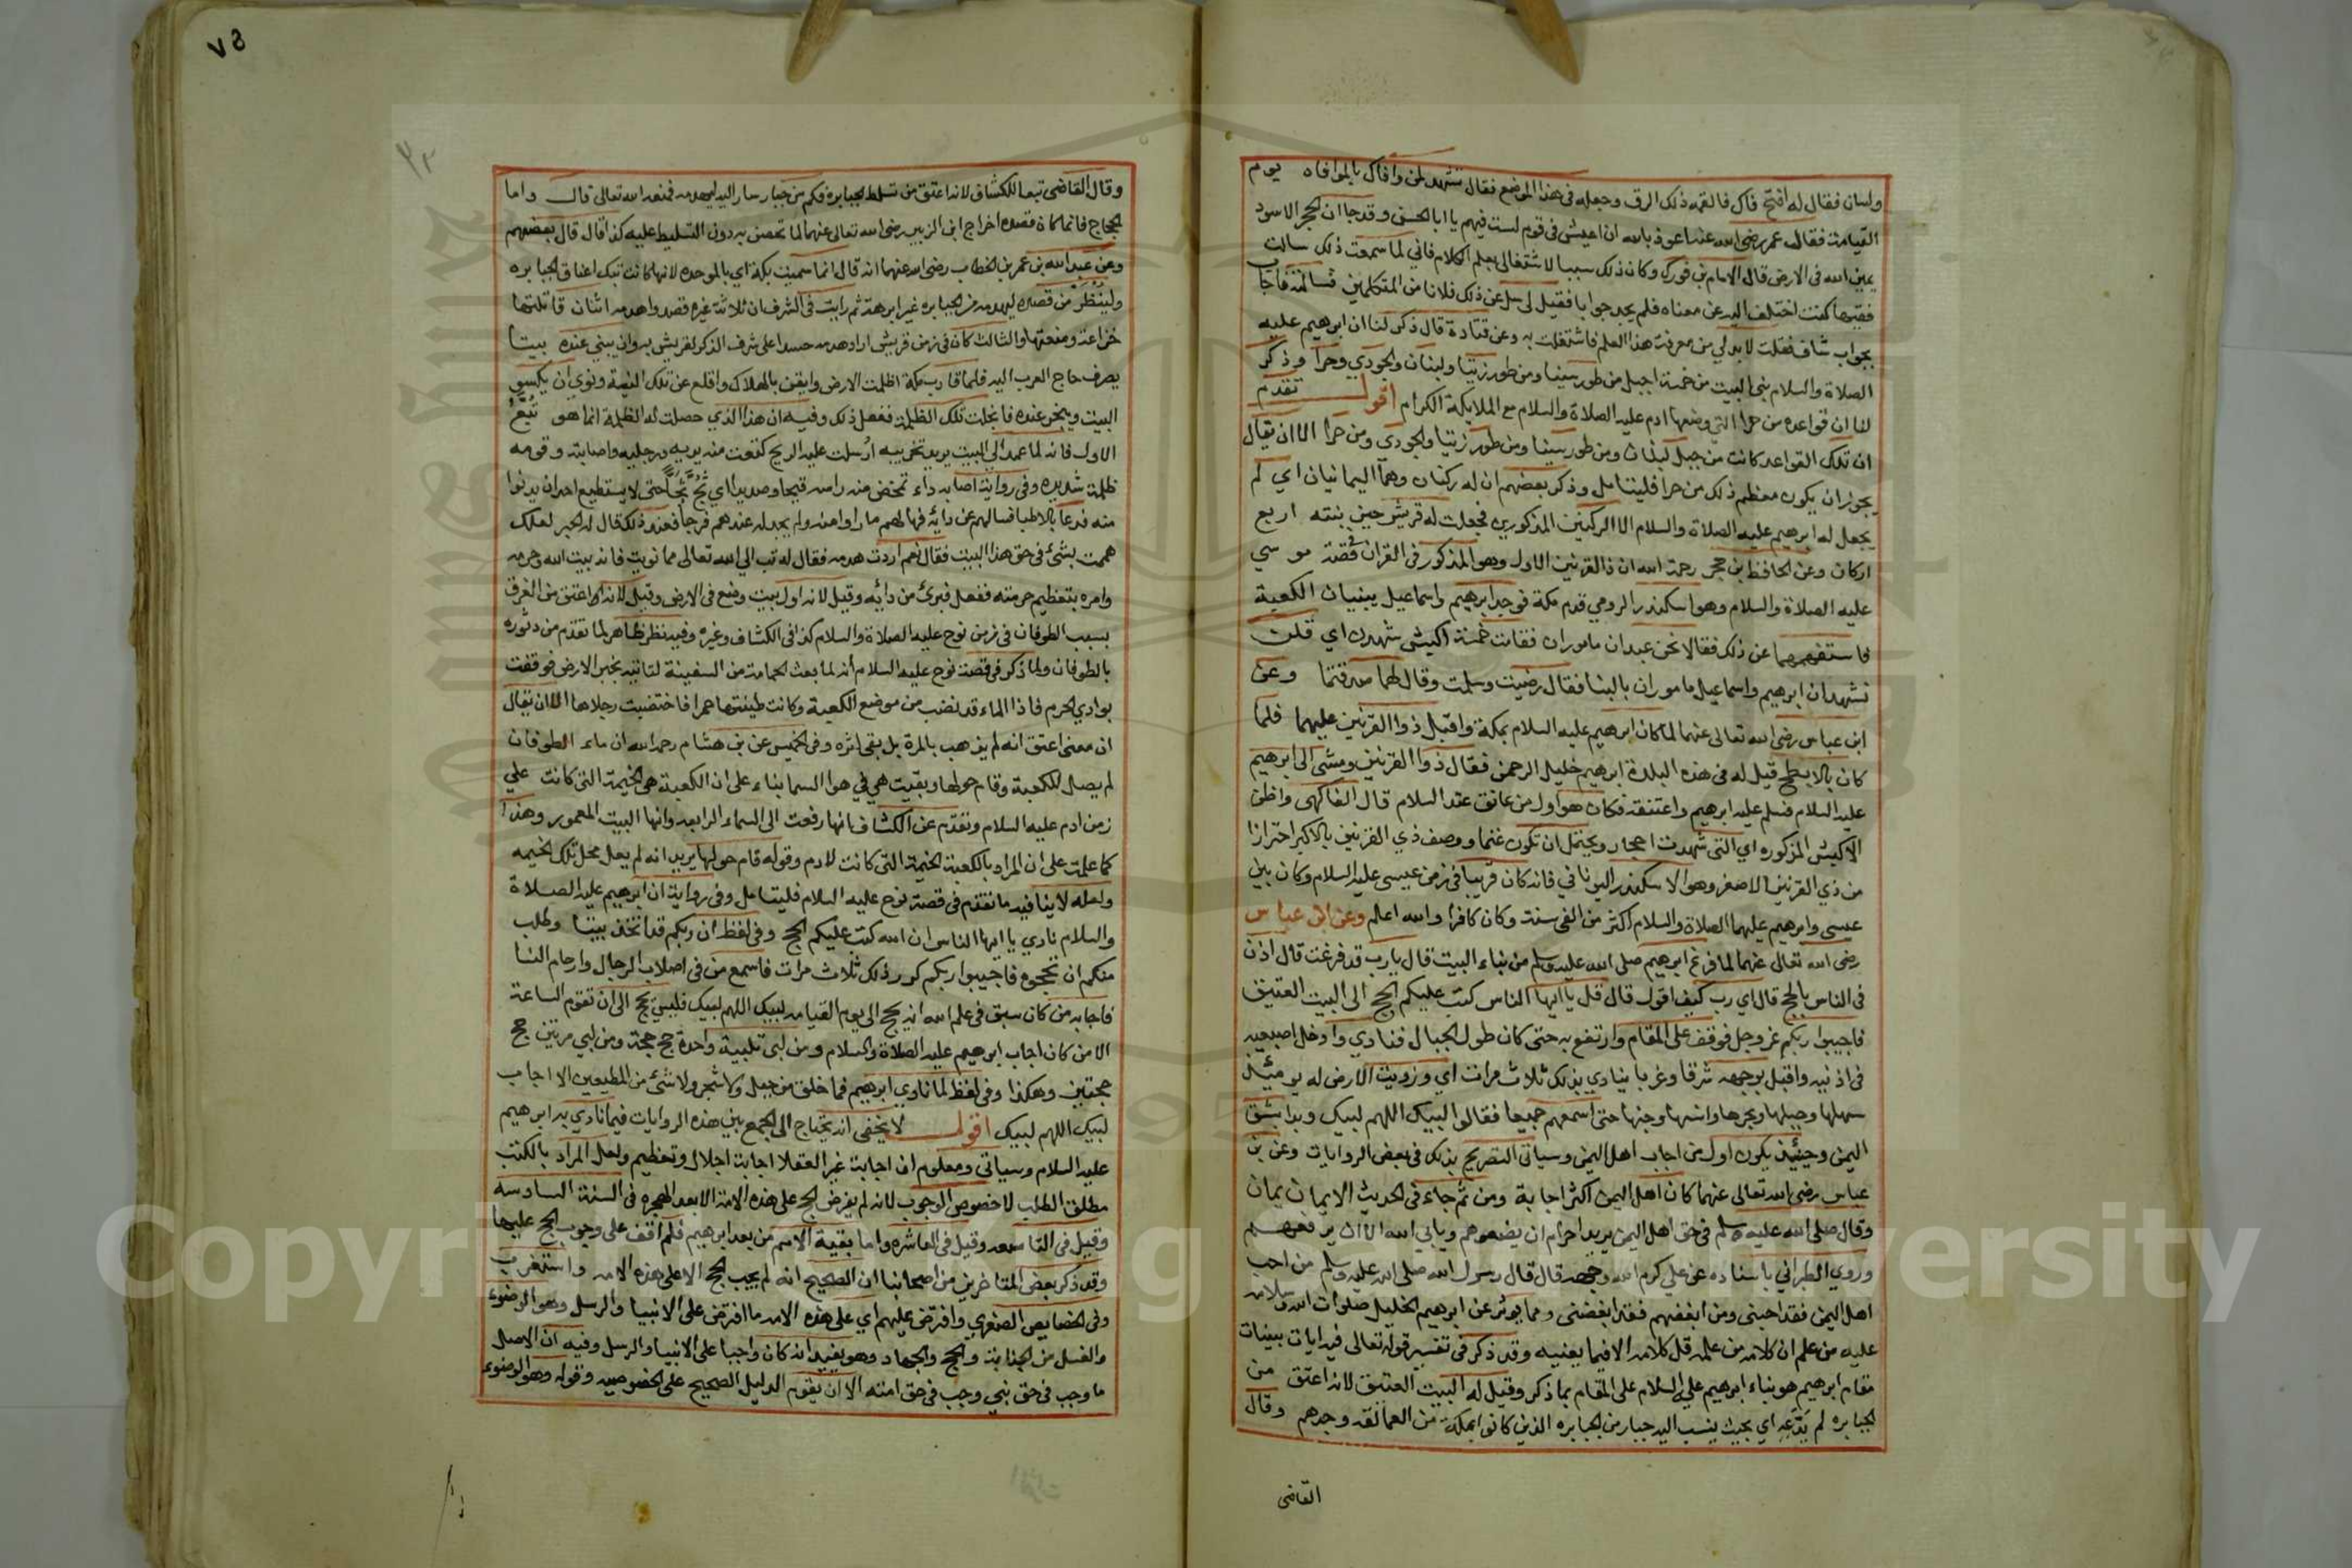 ولسان فقال له افتح فاك فالقمه ذلك الرق وجعله في هذا الموضع فقال تشهد لمن وافاك بالموافاه يوم
القيامة فقال عمر رضي الله عنه اعوذ بالله ان اعيش في قوم لست فيهم يا ابا الحسن وقد جا ان الحجر الاسود
يمين الله في الارض قال الامام بن فورك وكان ذلك سببا لاشتغالي بعلم الكلام فاني لما سمعت ذلك سالت
فقيها كنت اختلف اليه عن معناه فلم يجد جوابا فقيل لي سل عن ذلك فلانا من المتكلمين فسالته فاجاب
بجواب شاف فقلت لا بد لي من معرفة هذا العلم فاشتغلت به وعن قتادة قال ذكر لنا ان ابرهيم عليه
الصلاة والسلام بنى البيت من خمسة اجبل من طور سينا ومن طور زيتا ولبنان والجودي وحرا وذكر
لنا ان قواعده من حرا التي وضعها ادم عليه الصلاة والسلام مع الملايكة الكرام اقول تقدم
ان تلك القواعد كانت من جبل لبنان ومن طور سينا ومن طور زيتا والجودي ومن حرا الا ان يقال
يجوز ان يكون معظم ذلك من حرا فليتامل وذكر بعضهم ان له ركنان وهما اليمانيان اي لم
يجعل له ابرهيم عليه الصلاة والسلام الا الركنين المذكورين فجعلت له قريش حين بنته اربع
اركان وعن الحافظ بن حجر رحمة الله ان ذا القرنين الاول وهو المذكور في القران في قصة موسي
عليه الصلاة والسلام وهو اسكندر الرومي قدم مكة فوجد ابرهيم واسماعيل يبنيان الكعبة
فاستفهمهما عن ذلك فقالا نحن عبدان ماموران فقامت خمسة اكبش شهدن اي قلن
نشهد ان ابرهيم واسماعيل ماموران بالبنا فقال رضيت وسلمت وقال لهما صدقتما وعن
ابن عباس رضي الله تعالى عنهما لما كان ابرهيم عليه السلام بمكة واقبل ذوا القرنين عليهما فلما
كان بالابطح قيل له في هذه البلدة ابرهيم خليل الرحمن فقال ذوا القرنين ومشى الى ابرهيم
عليه السلام فسلم عليه ابرهيم واعتنقه فكان هو اول من عانق عند السلام قال الفاكهى واظن
الاكبش المذكوره اي التي شهدت احجار ويحتمل ان تكون غنما ووصف ذي القرنين بالاكبر احترازا
من ذي القرنين الاصغر وهو الاسكندر اليوناني فانه كان قريبا في زمن عيسى عليه السلام وكان بين
عيسى وابرهيم عليهما الصلاة والسلام اكثر من الفى سنة وكان كافرا والله اعلم وعن ابن عباس
رضي الله تعالى عنهما لما فرغ ابرهيم صلى الله عليه وسلم من بناء البيت قال يارب قد فرغت قال اذن
في الناس بالحج قال اي رب كيف اقول قال قل يا ايها الناس كتب عليكم الحج الى البيت العتيق
فاجيبوا ربكم عز وجل فوقف على المقام وارتفع به حتى كان طول الجبال فنادي وادخل اصبعيه
في اذنيه واقبل بوجهه شرقا وغربا ينادي بذلك ثلاث مرات اي وزويت الارض له يومئذ
سهلها وجبلها وبحرها وانسها وجنها حتى اسمعهم جميعا فقالوا لبيك اللهم لبيك وبدا بشق
اليمن وحينئذ يكون اول من اجاب اهل اليمن وسياتى التصريح بذلك في بعض الروايات وعن بن
عباس رضي الله تعالى عنهما كان اهل اليمن اكثر اجابة ومن ثم جاء في الحديث الايمان يمان
وقال صلى الله عليه وسلم في حق اهل اليمن يريد اقوام ان يضعوهم ويابي الله الا ان يرفعهم
وروي الطبراني باسناده عن علي كرم الله وجهه قال قال رسول الله صلى الله عليه وسلم من احب
اهل اليمن فقد احبنى ومن ابغضهم فقد ابغضنى ومما يوثر عن ابرهيم الخليل صلوات الله وسلامه
عليه من علم ان كلامه من عمله قل كلامه الا فيما يعنيه وقد ذكر في تفسير قوله تعالى فيه ايات بينات
مقام ابرهيم هو بناء ابرهيم عليه السلام على المقام بما ذكر وقيل له البيت العتيق لانه اعتق من
الجبابره لم يدعه اي بحيث ينسب اليه جبار من الجبابره الذين كانوا بمكة من العمالقه وجرهم وقال
القاضى
٧٥
٣٢
وقال القاضى تبعا للكشاف لانه اعتق من تسلط الجبابره فكم من جبار سار اليه ليهدمه فمنعه الله تعالى قال واما
الحجاج فانما كان قصده اخراج ابن الزبير رضي الله تعالى عنهما لما تحصن به دون التسليط عليه كذا قال قال بعضهم
وعن عبد الله بن عمر بن الخطاب رضي الله عنهما انه قال انما سميت بكة اي بالموحده لانها كانت تبك اعناق الجبابره
ولينظر من قصده ليهدمه من الجبابره غير ابرهة ثم رايت في الشرف ان ثلاثة غيره قصدوا هدمه اثنان قاتلتهما
خزاعة ومنعتهما والثالث كان في زمن قريش اراد هدمه حسدا على شرف الذكر لقريش به وان يبني عنده بيتا
يصرف حاج العرب اليه فلما قارب مكة اظلمت الارض وايقن بالهلاك واقلع عن تلك النية ونوي ان يكسو
البيت وينحر عنده فانجلت تلك الظلمة ففعل ذلك وفيه ان هذا الذي حصلت له الظلمة انما هو تبع
الاول فانه لما عمد الى البيت يريد تخريبه ارسلت عليه الريح كتعت منه يديه ورجليه واصابته وقومه
ظلمة شديده وفي رواية اصابه داء تمخض منه راسه قيحا وصديدا اي ثج ثجا حتى لا يستطيع احد ان يدنوا
منه فدعا بالاطبا فسالهم عن دائه فهالهم ما راوا منه ولم يجد له عندهم فرجا فعند ذلك قال له الحبر لعلك
هممت بشئ في حق هذا البيت فقال نعم اردت هدمه فقال له تب الي الله تعالى مما نويت فانه بيت الله وحرمه
وامره بتعظيم حرمته ففعل فبرئ من دائه وقيل لانه اول بيت وضع في الارض وقيل لانه اعتق من الغرق
بسبب الطوفان في زمن نوح عليه الصلاة والسلام كذا في الكشاف وغيره وفيه نظر ظاهر لما تقدم من دثوره
بالطوفان ولما ذكر في قصة نوح عليه السلام انه لما بعث الحمامة من السفينة لتاتيه بخبر الارض فوقفت
بوادي الحرم فاذا الماء قد نضب من موضع الكعبة وكانت طينتها حمرا فاختضبت رجلاها الا ان يقال
ان معنى اعتق انه لم يذهب بالمرة بل بقى اثره وفي الخميس عن بن هشام رحمه الله ان ماء الطوفان
لم يصل للكعبة وقام حولها وبقيت هي في هوا السما بناء على ان الكعبة هي الخيمة التي كانت علي
زمن ادم عليه السلام وتقدم عن الكشاف بانها رفعت الى السماء الرابعه وانها البيت المعمور وهذا
كما علمت على ان المراد بالكعبة الخيمة التي كانت لادم وقوله قام حولها يريد انه لم يعل محل تلك الخيمه
ولعله لا ينافيه ما تقدم في قصة نوح عليه السلام فليتامل وفي رواية ان ابرهيم عليه الصلاة
والسلام نادي يا ايها الناس ان الله كتب عليكم الحج وفي لفظ ان ربكم قد اتخذ بيتا وطلب
منكم ان تحجوه فاجيبوا ربكم كرر ذلك ثلاث مرات فاسمع من في اصلاب الرجال وارحام النسا
فاجابه من كان سبق في علم الله انه يحج الى يوم القيامه لبيك اللهم لبيك فليس يحج الى ان تقوم الساعة
الا من كان اجاب ابرهيم عليه الصلاة والسلام ومن لبى تلبية واحدة حج حجة ومن لبي مرتين حج
حجتين وهكذا وفي لفظ لما نادي ابرهيم فما خلق من جبل ولا شجر ولا شئ من المطيعين الا اجاب
لبيك اللهم لبيك اقول لا يخفى انه يحتاج الى الجمع بين هذه الروايات فيما نادي به ابرهيم
عليه السلام وسياتى ومعلوم ان اجابة غير العقلا اجابة اجلال وتعظيم ولعل المراد بالكتب
مطلق الطلب لا خصوص الوجوب لانه لم يفرض الحج على هذه الامة الا بعد الهجره في السنة السادسه
وقيل في التاسعه وقيل في العاشره واما بقية الامم من بعد ابرهيم فلم اقف على وجوب الحج عليها
وقد ذكر بعض المتاخرين من اصحابنا ان الصحيح انه لم يجب الحج الا على هذه الامه واستغرب
وفي الخصايص الصغري وافترض عليهم اي على هذه الامه ما افترض على الانبيا والرسل وهو الوضوء
والغسل من الجنابة والحج والجهاد وهو يفيد انه كان واجبا على الانبيا والرسل وفيه ان الاصل
ما وجب في حق نبي وجب في حق امته الا ان يقوم الدليل الصحيح على الخصوصيه وقوله وهو الوضوء
Copyright © King Saud University